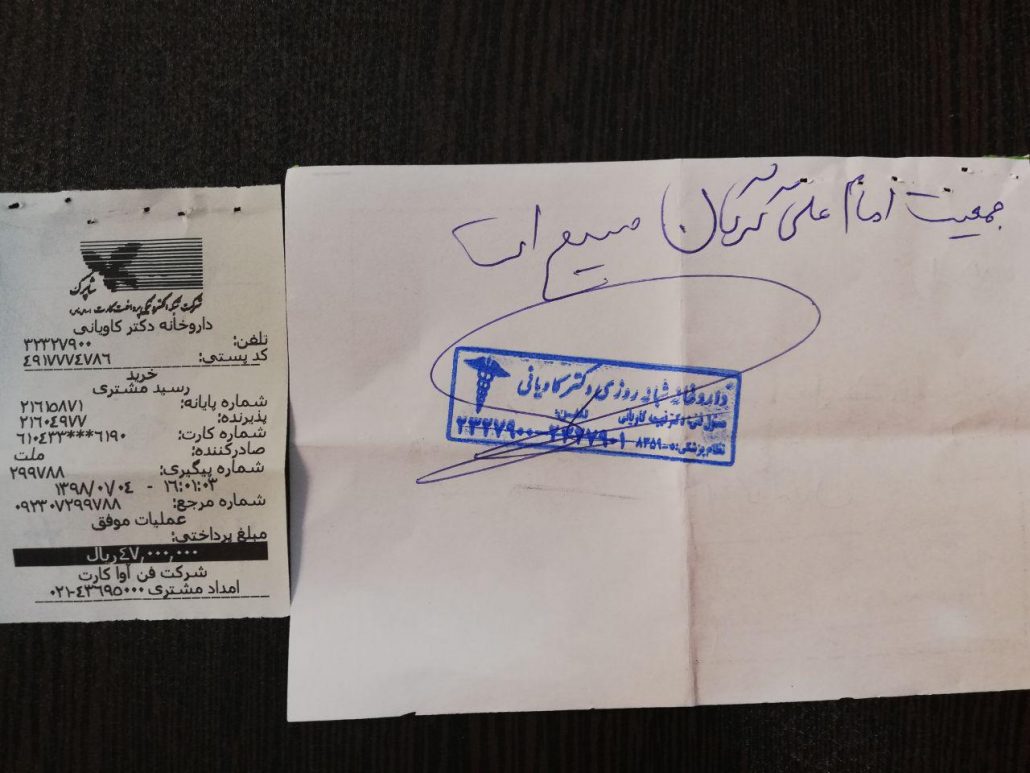 جمعیت امام علی
شاپرک
شرکت شبکه الکترونیکی پرداخت کارت
داروخانه دکتر کاویانی
تلفن: ۳۲۳۲۷۹۰۰
کد پستی: ۴۹۱۷۷۷۴۷۸۶
خرید
رسید مشتری
شماره پایانه: ۲۱۶۱۵۸۷۱
پذیرنده: ۲۱۶۰۴۹۷۷
شماره کارت: ۶۱۰۴۳۳***۶۱۹۰
صادرکننده: ملت
شماره پیگیری: ۲۹۹۷۸۸
۱۶:۰۱:۰۳ - ۱۳۹۸/۰۱/۰۴
شماره مرجع: ۰۹۲۳۰۷۲۹۹۷۸۸
عملیات موفق
مبلغ پرداختی:
۴۷,۰۰۰,۰۰۰ ریال
شرکت فن آوا کارت
امداد مشتری ۰۲۱-۴۳۶۹۵۰۰۰
داروخانه شبانه روزی دکتر کاویانی
مسئول فنی: دکتر کاویانی تلفن:
نظام پزشکی: ۸۳۵۹-د ۲۳۲۷۹۰۱-۲۳۲۷۹۰۰